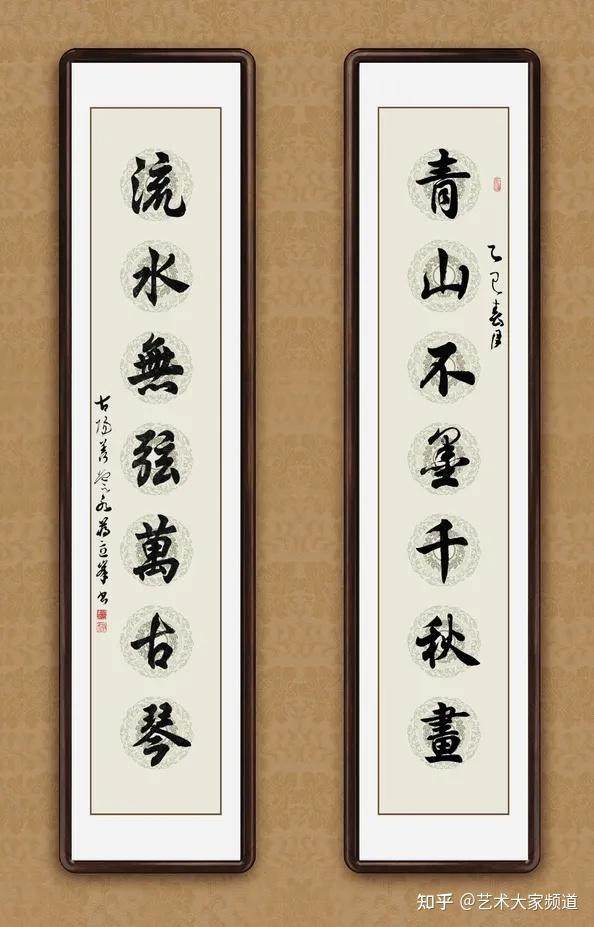 青山不墨千秋畫
乙巳春月
流水無弦萬古琴
蔣立峯书
知乎 @艺术大家频道